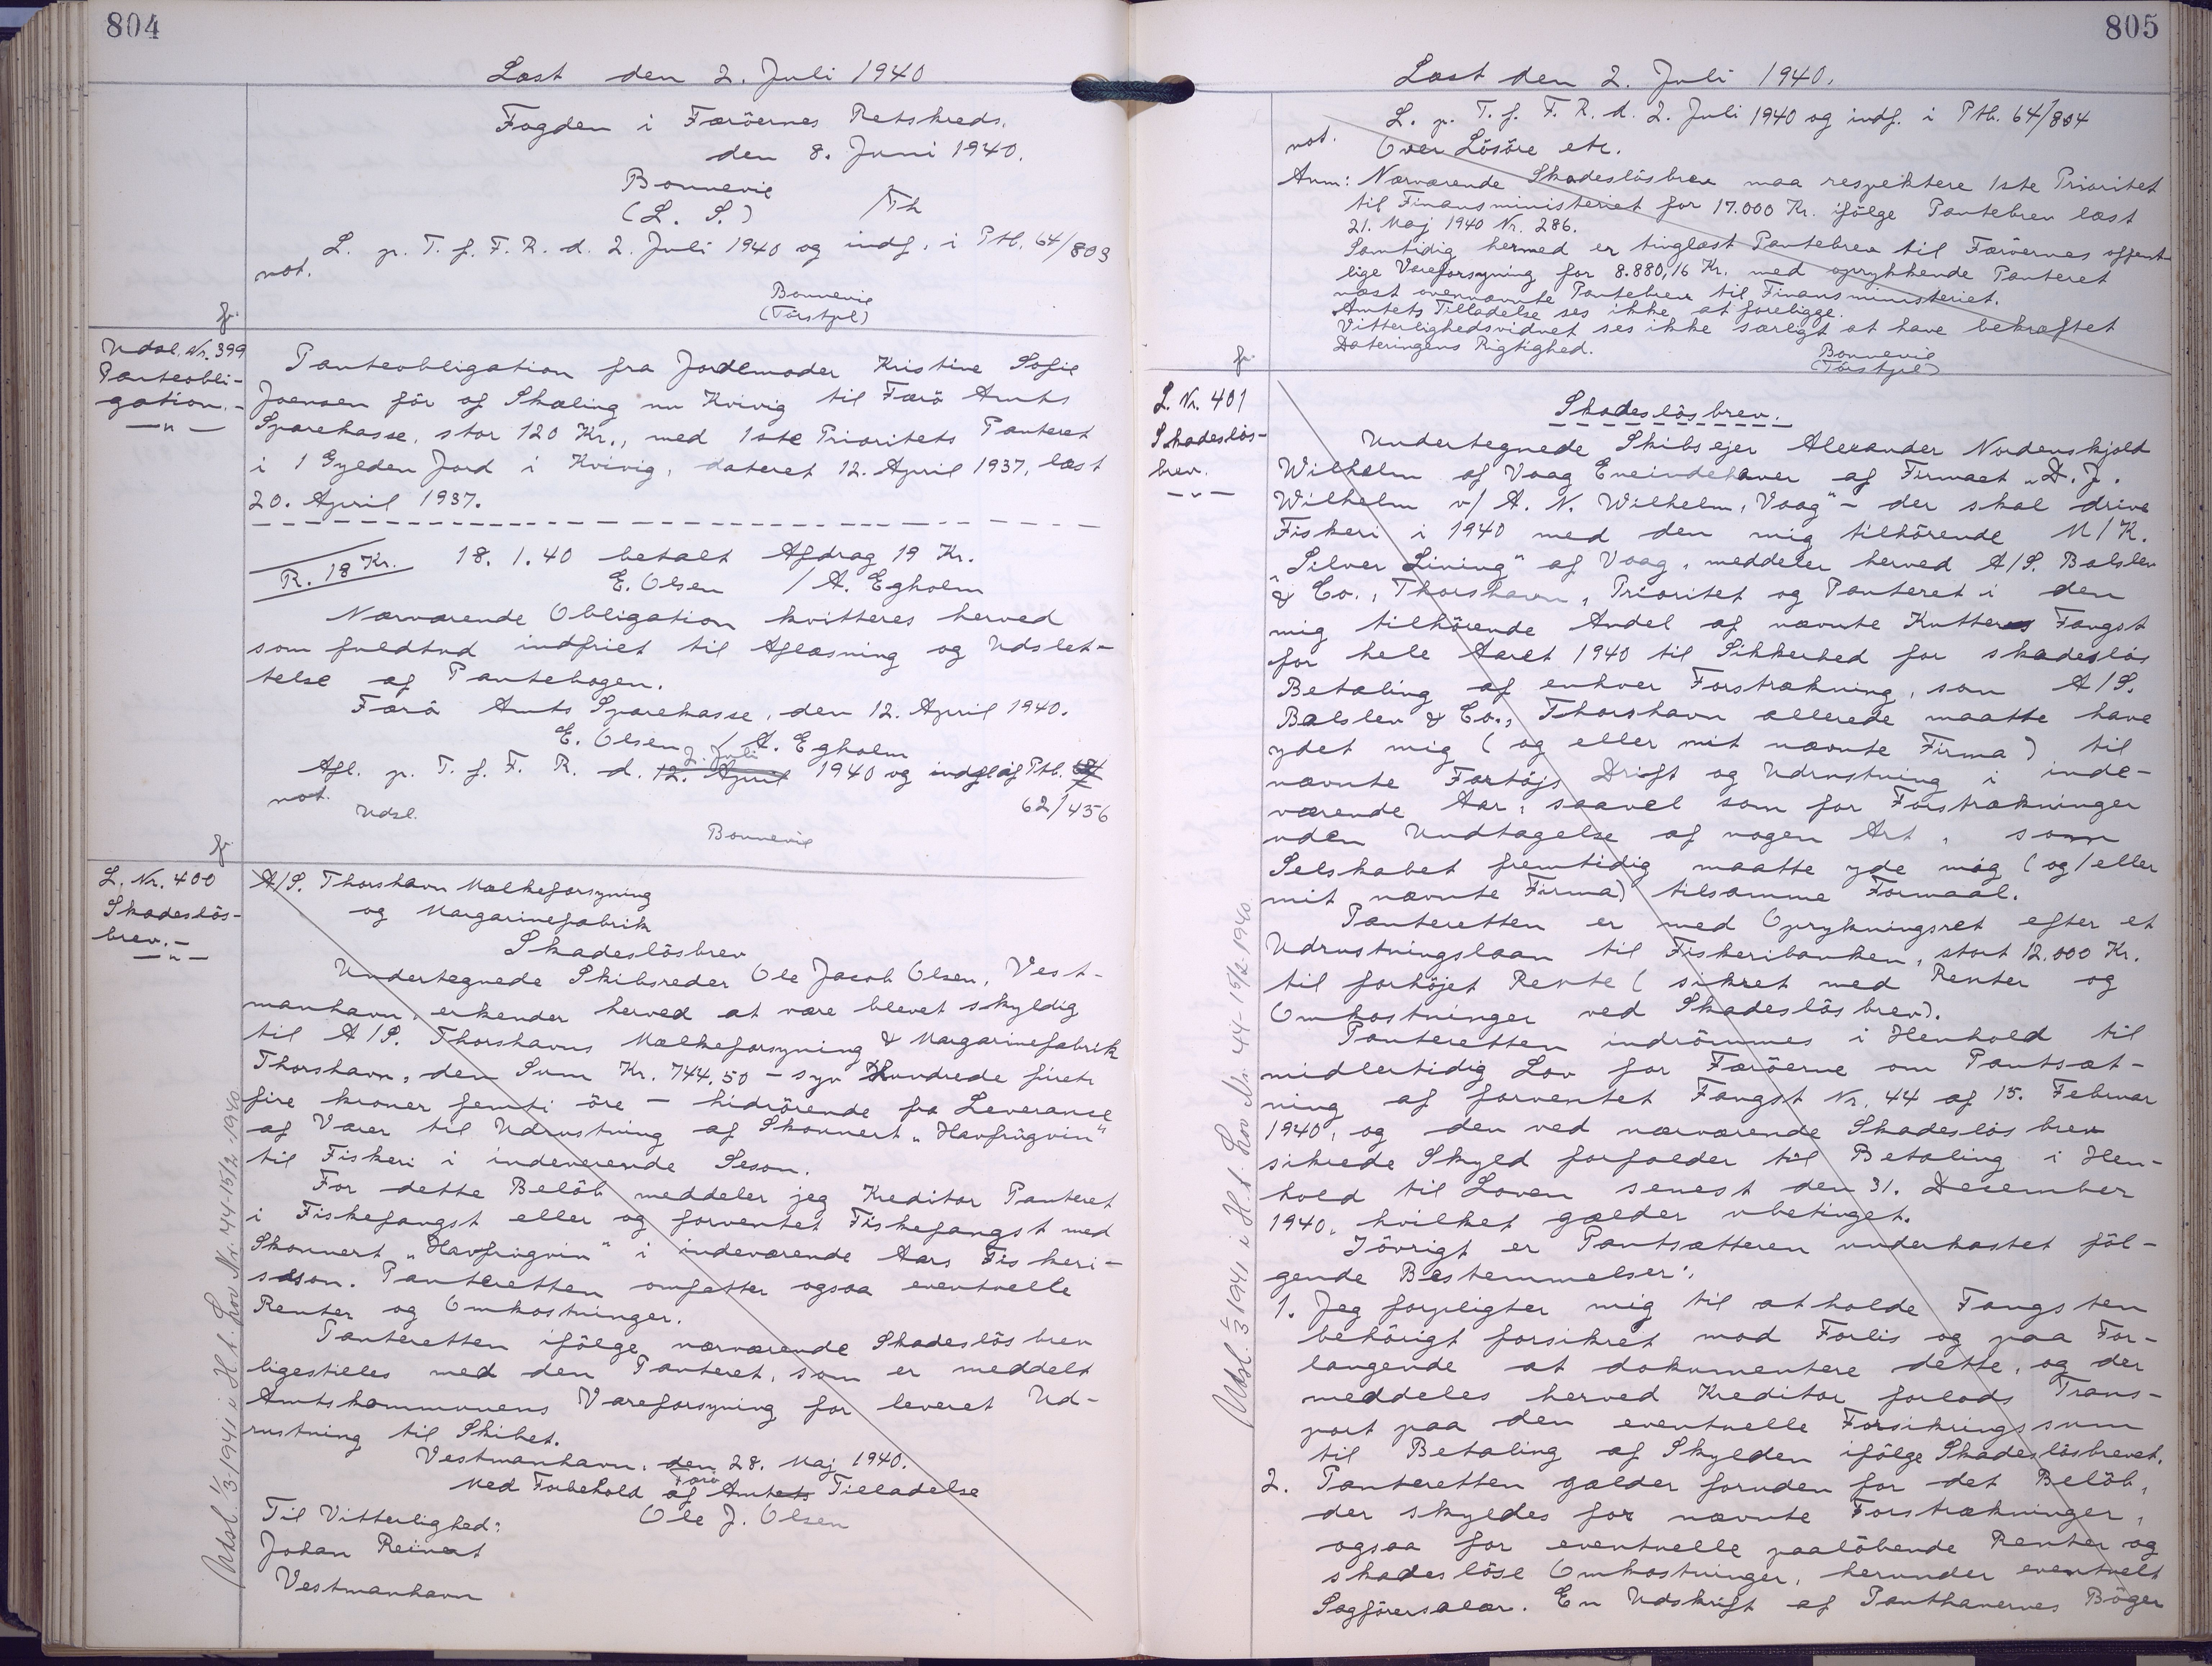 804
Læst den 2. Juli 1940
Fogden i Færöernes Retskreds.
den 8. Juni 1940.
Bonnevie
(L. S.) /Th
L. p. T. f. F. R. d. 2. Juli 1940 og indf. i Ptb. 64/803
not.
Bonnevie
(Törstpl)
fr.
Udsl. Nr. 399
Panteobli-
gation.-
—"—
Panteobligation fra Jordemoder Kristine Sofie
Joensen för af Skæling nu Kvivig til Færö Amts
Sparekasse, stor 120 Kr., med 1ste Prioritets Panteret
i 1 Gylden Jord i Kvivig, dateret 12. April 1937, læst
20. April 1937.
R. 18 Kr. 18. 1. 40 betalt Afdrag 19 Kr.
E. Olsen / A. Egholm
Nærværende Obligation kvitteres herved
som fuldtud indfriet til Aflæsning og Udslet-
telse af Pantebogen.
Færö Amts Sparekasse, den 12. April 1940.
E. Olsen / A. Egholm
2. Juli
Afl. p. T. f. F. R. d. 12. April 1940 og indf af Ptb. 64
not. 62/456
Udsl.
Bonnevie
fr.
L. Nr. 400
Skadeslös-
brev.-
—"—
A/S. Thorshavn Mælkeforsyning
og Margarinefabrik
Skadeslösbrev
Undertegnede Skibsreder Ole Jacob Olsen, Vest-
manhavn, erkender herved at være blevet skyldig
til A/S. Thorshavns Mælkeforsyning & Margarinefabrik
Thorshavn, den Sum Kr. 744,50 - syv Hundrede fireti
fire kroner femti öre - hidrörende fra Leverance
af Varer til Udrustning af Skonnert „Havfrúgvin"
til Fiskeri i indeverende Seson.
For dette Belöb meddeler jeg Kreditor Panteret
i Fiskefangst eller og forventet Fiskefangst med
Skonnert „Havfrúgvin" i indeværende Aars Fiskeri-
sæson. Panteretten omfatter ogsaa eventuelle
Renter og Omkostninger.
Panteretten ifölge nærværende Skadeslösbrev
ligestilles med den Panteret, som er meddelt
Amtskommunens Vareforsyning for leveret Ud-
rustning til Skibet.
Vestmanhavn, den 28. Maj 1940.
Færö
Med Forbehold af Amtets Tilladelse
Til Vitterlighed: Ole J. Olsen
Johan Reinert
Vestmanhavn
Udsl. 1/3 1941 i H.t. Lov Nr. 44-15/2-1940
805
Læst den 2. Juli 1940.
L. p. T. f. F. R. d. 2. Juli 1940 og indf. i Ptb. 64/804
not. Over Lösöre etc.
Anm: Nærværende Skadeslösbrev maa respektere 1ste Prioritet
til Finansministeriet for 17.000 Kr. ifölge Pantebrev læst
21. Maj 1940 Nr. 286.
Samtidig hermed er tinglæst Pantebrev til Færöernes offent-
lige Vareforsyning for 8.880,16 Kr. med oprykkende Panteret
næst ovennævnte Pantebrev til Finansministeriet.
Amtets Tilladelse ses ikke at foreligge.
Vitterlighedsvidnet ses ikke særligt at have bekræftet
Dateringens Rigtighed.
Bonnevie
(Törstpl)
fr.
L. Nr. 401
Skadeslös-
brev.
—"—
Skadeslösbrev.
Undertegnede Skibsejer Alexander Nordenskjold
Wilhelm af Vaag Eneindehaver af Firmaet „D. J.
Wilhelm v/ A. N. Wilhelm, Vaag" - der skal drive
Fiskeri i 1940 med den mig tilhörende M/K.
„Silver Lining" af Vaag, meddeler herved A/S. Balslev
& Co., Thorshavn, Prioritet og Panteret i den
mig tilhörende Andel af nævnte Kutters Fangst
for hele Aaret 1940 til Sikkerhed for skadeslös
Betaling af enhver Forstrækning, som A/S.
Balslev & Co., Thorshavn allerede maatte have
ydet mig (og eller mit nævnte Firma) til
nævnte Fartöjs Drift og Udrustning i inde-
værende Aar, saavel som for Forstrækninger
uden Undtagelse af nogen Art, som
Selskabet fremtidig maatte yde mig (og/eller
mit nævnte Firma) tilsamme Formaal.
Panteretten er med Oprykningsret efter et
Udrustningslaan til Fiskeribanken, stort 12.000 Kr.
til forhöjet Rente (sikret med Renter og
Omkostninger ved Skadeslösbrev).
Panteretten indrömmes i Henhold til
midlertidig Lov for Færöerne om Pantsæt-
ning af forventet Fangst Nr. 44 af 15. Februar
1940, og den ved nærværende Skadeslösbrev
sikrede Skyld forfalder til Betaling i Hen-
hold til Loven senest den 31. December
1940, hvilket gælder ubetinget.
Iövrigt er Pantsætteren underkastet föl-
gende Bestemmelser:
1. Jeg forpligter mig til at holde Fangsten
behörigt forsikret mod Forlis og paa For-
langende at dokumentere dette, og der
meddeles herved Kreditor forlods Trans-
port paa den eventuelle Forsikringssum
til Betaling af Skylden ifölge Skadeslösbrevet.
2. Panteretten gælder foruden for det Belöb,
der skyldes for nævnte Forstrækninger,
ogsaa for eventuelle paalöbende Renter og
skadeslöse Omkostninger, herunder eventuelt
Sagförersalær. En Udskrift af Panthavernes Böger
Udsl. 1/3 1941 i H.t. Lov Nr. 44-15/2 1940